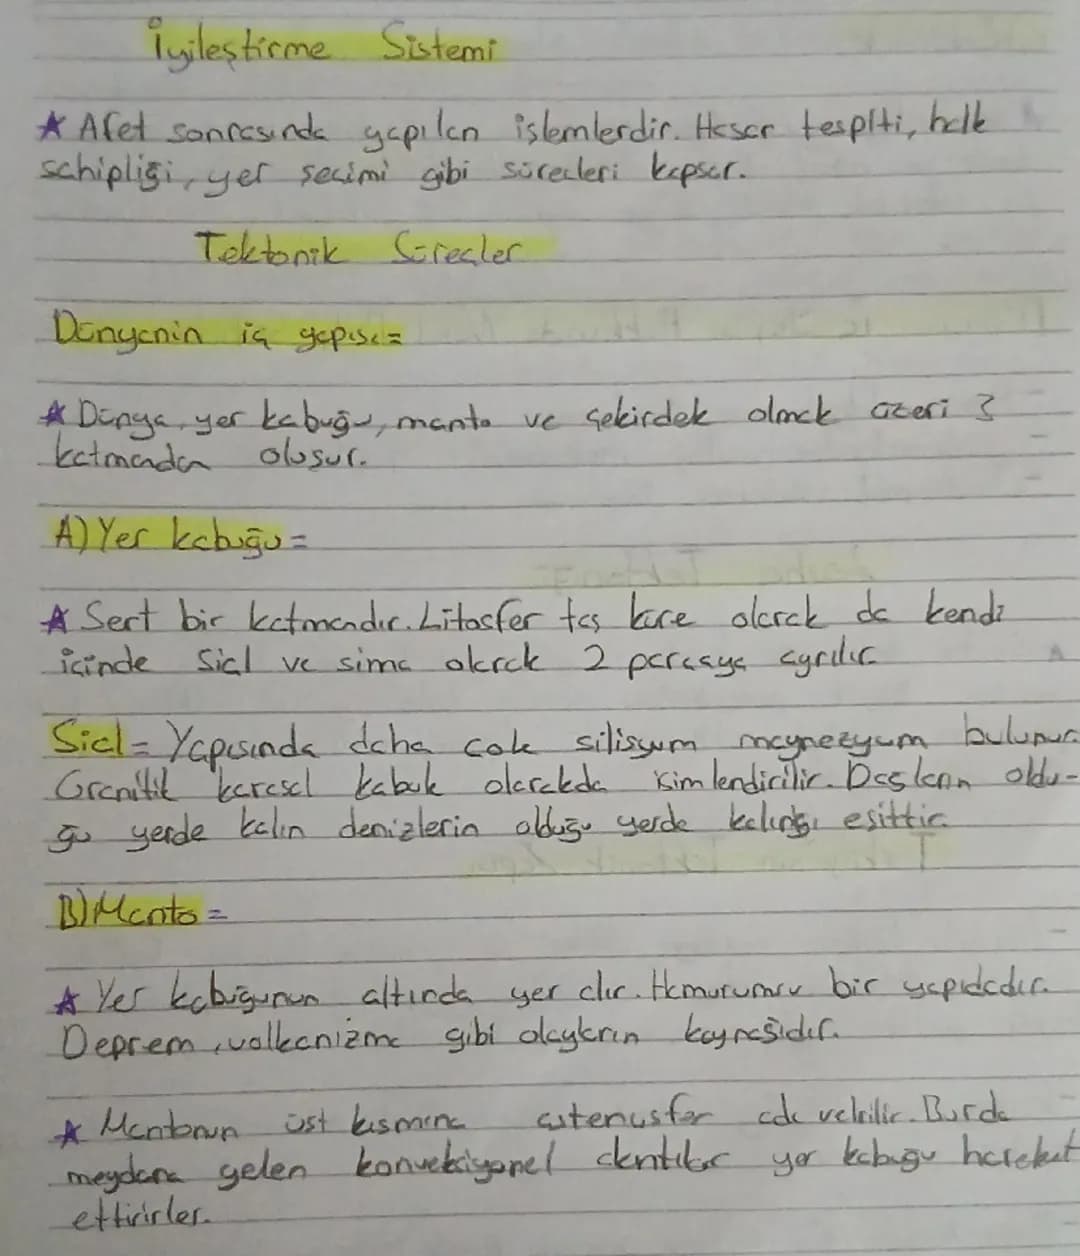 İyileştirme Sistemi
★ Afet sonrasında yapılan işlemlerdir. Hasar tespiti, halk
sahipliği, yer seçimi gibi süreçleri kapsar.
Tektonik Süreçler
Dünyanin iç yapısı=
★ Dünya, yer kabuğu, manto ve çekirdek olmak üzeri 3
katmandan olusur.
A) Yer kabuğu=
★ Sert bir katmandır. Litosfer taş küre olarak da kendi
içinde Sial ve sima olarak 2 parçaya ayrılır
Sial= Yapısında daha çok silisyum magnezyum bulunur
Granitik karasal kabuk olarakda isimlendirilir. Dağların oldu-
ğu yerde kalın denizlerin olduğu yerde kalınlığı eşittir.
B) Manto=
★ Yer kabuğunun altında yer alır. Hamurumsu bir yapıdadır.
Deprem, volkanizma gibi olayların kaynağıdır.
★ Mantonun üst kısmına astenosfer ada verilir. Burda
meydana gelen konveksiyonel akıntılar yer kabuğu hareket
ettirirler.